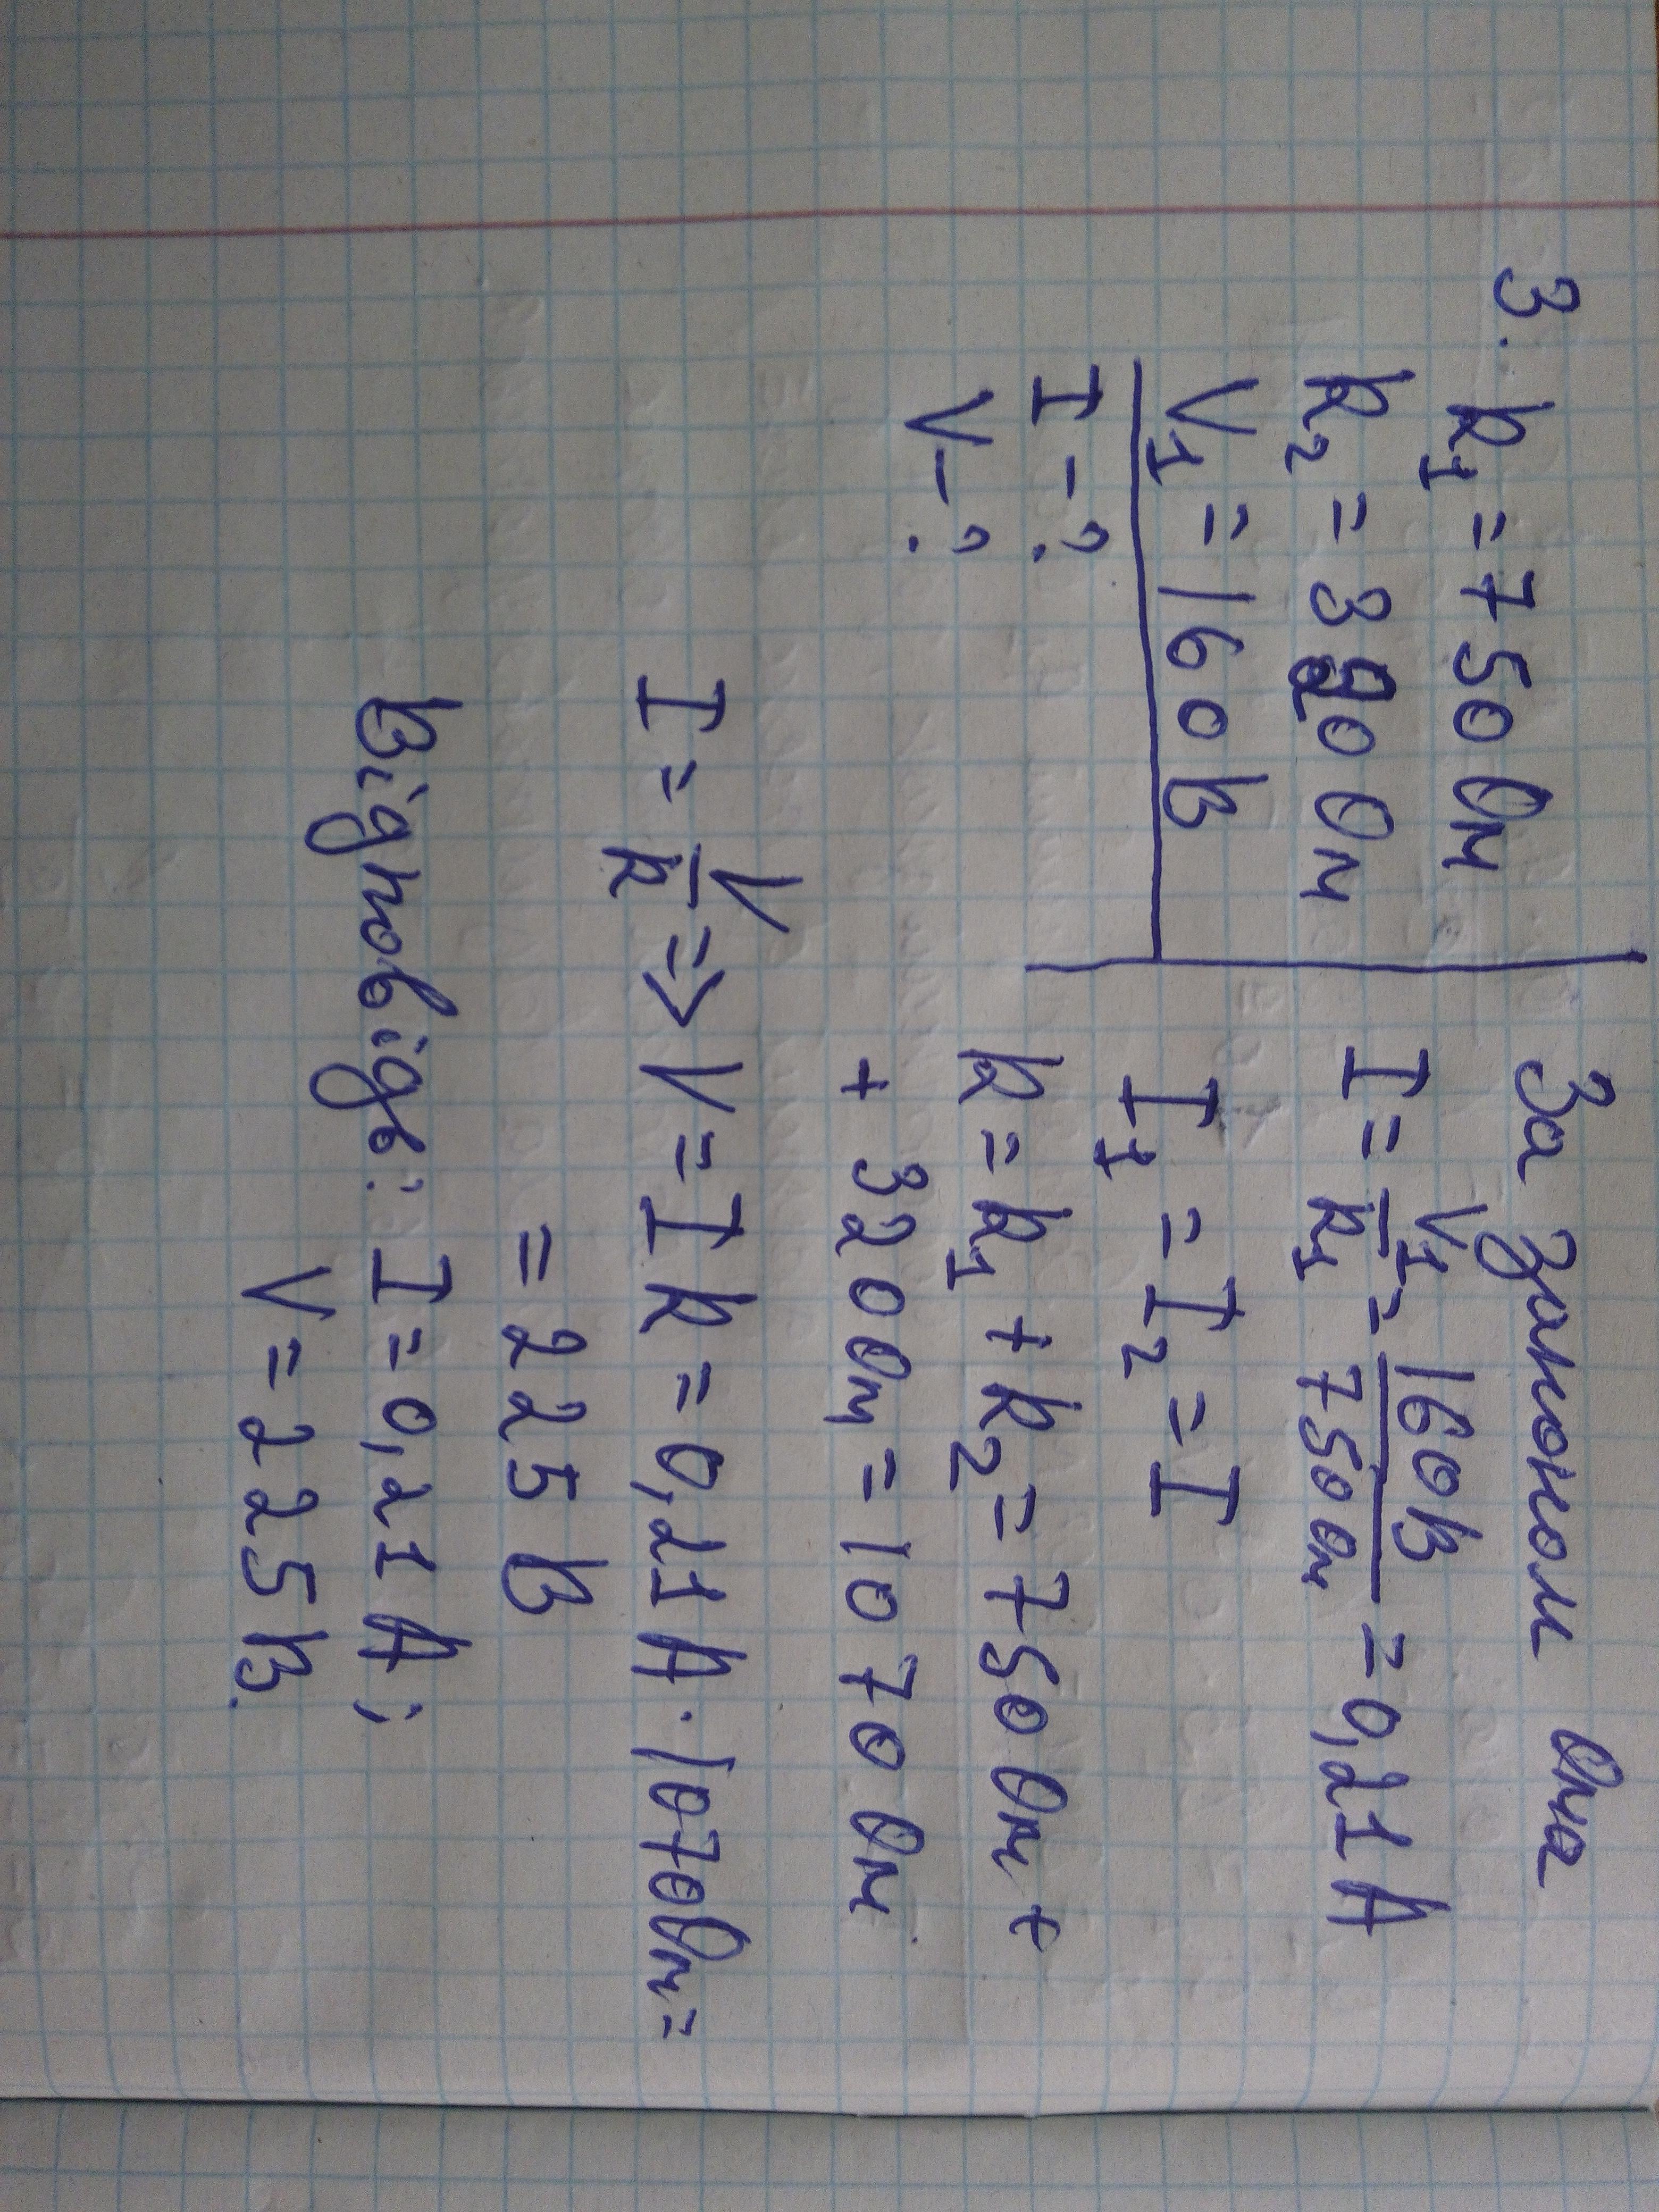 3. R₁ = 750 Ом
R₂ = 320 Ом
V₁ = 160 В
I - ?
V - ?
За законом Ома
I = V₁/R₁ = 160В/750 Ом = 0,21 А
I₁ = I₂ = I
R = R₁ + R₂ = 750 Ом +
+ 320 Ом = 1070 Ом
I = V/R => V = I R = 0,21 А · 1070 Ом =
= 225 В
Відповідь: I = 0,21 А;
V = 225 В.